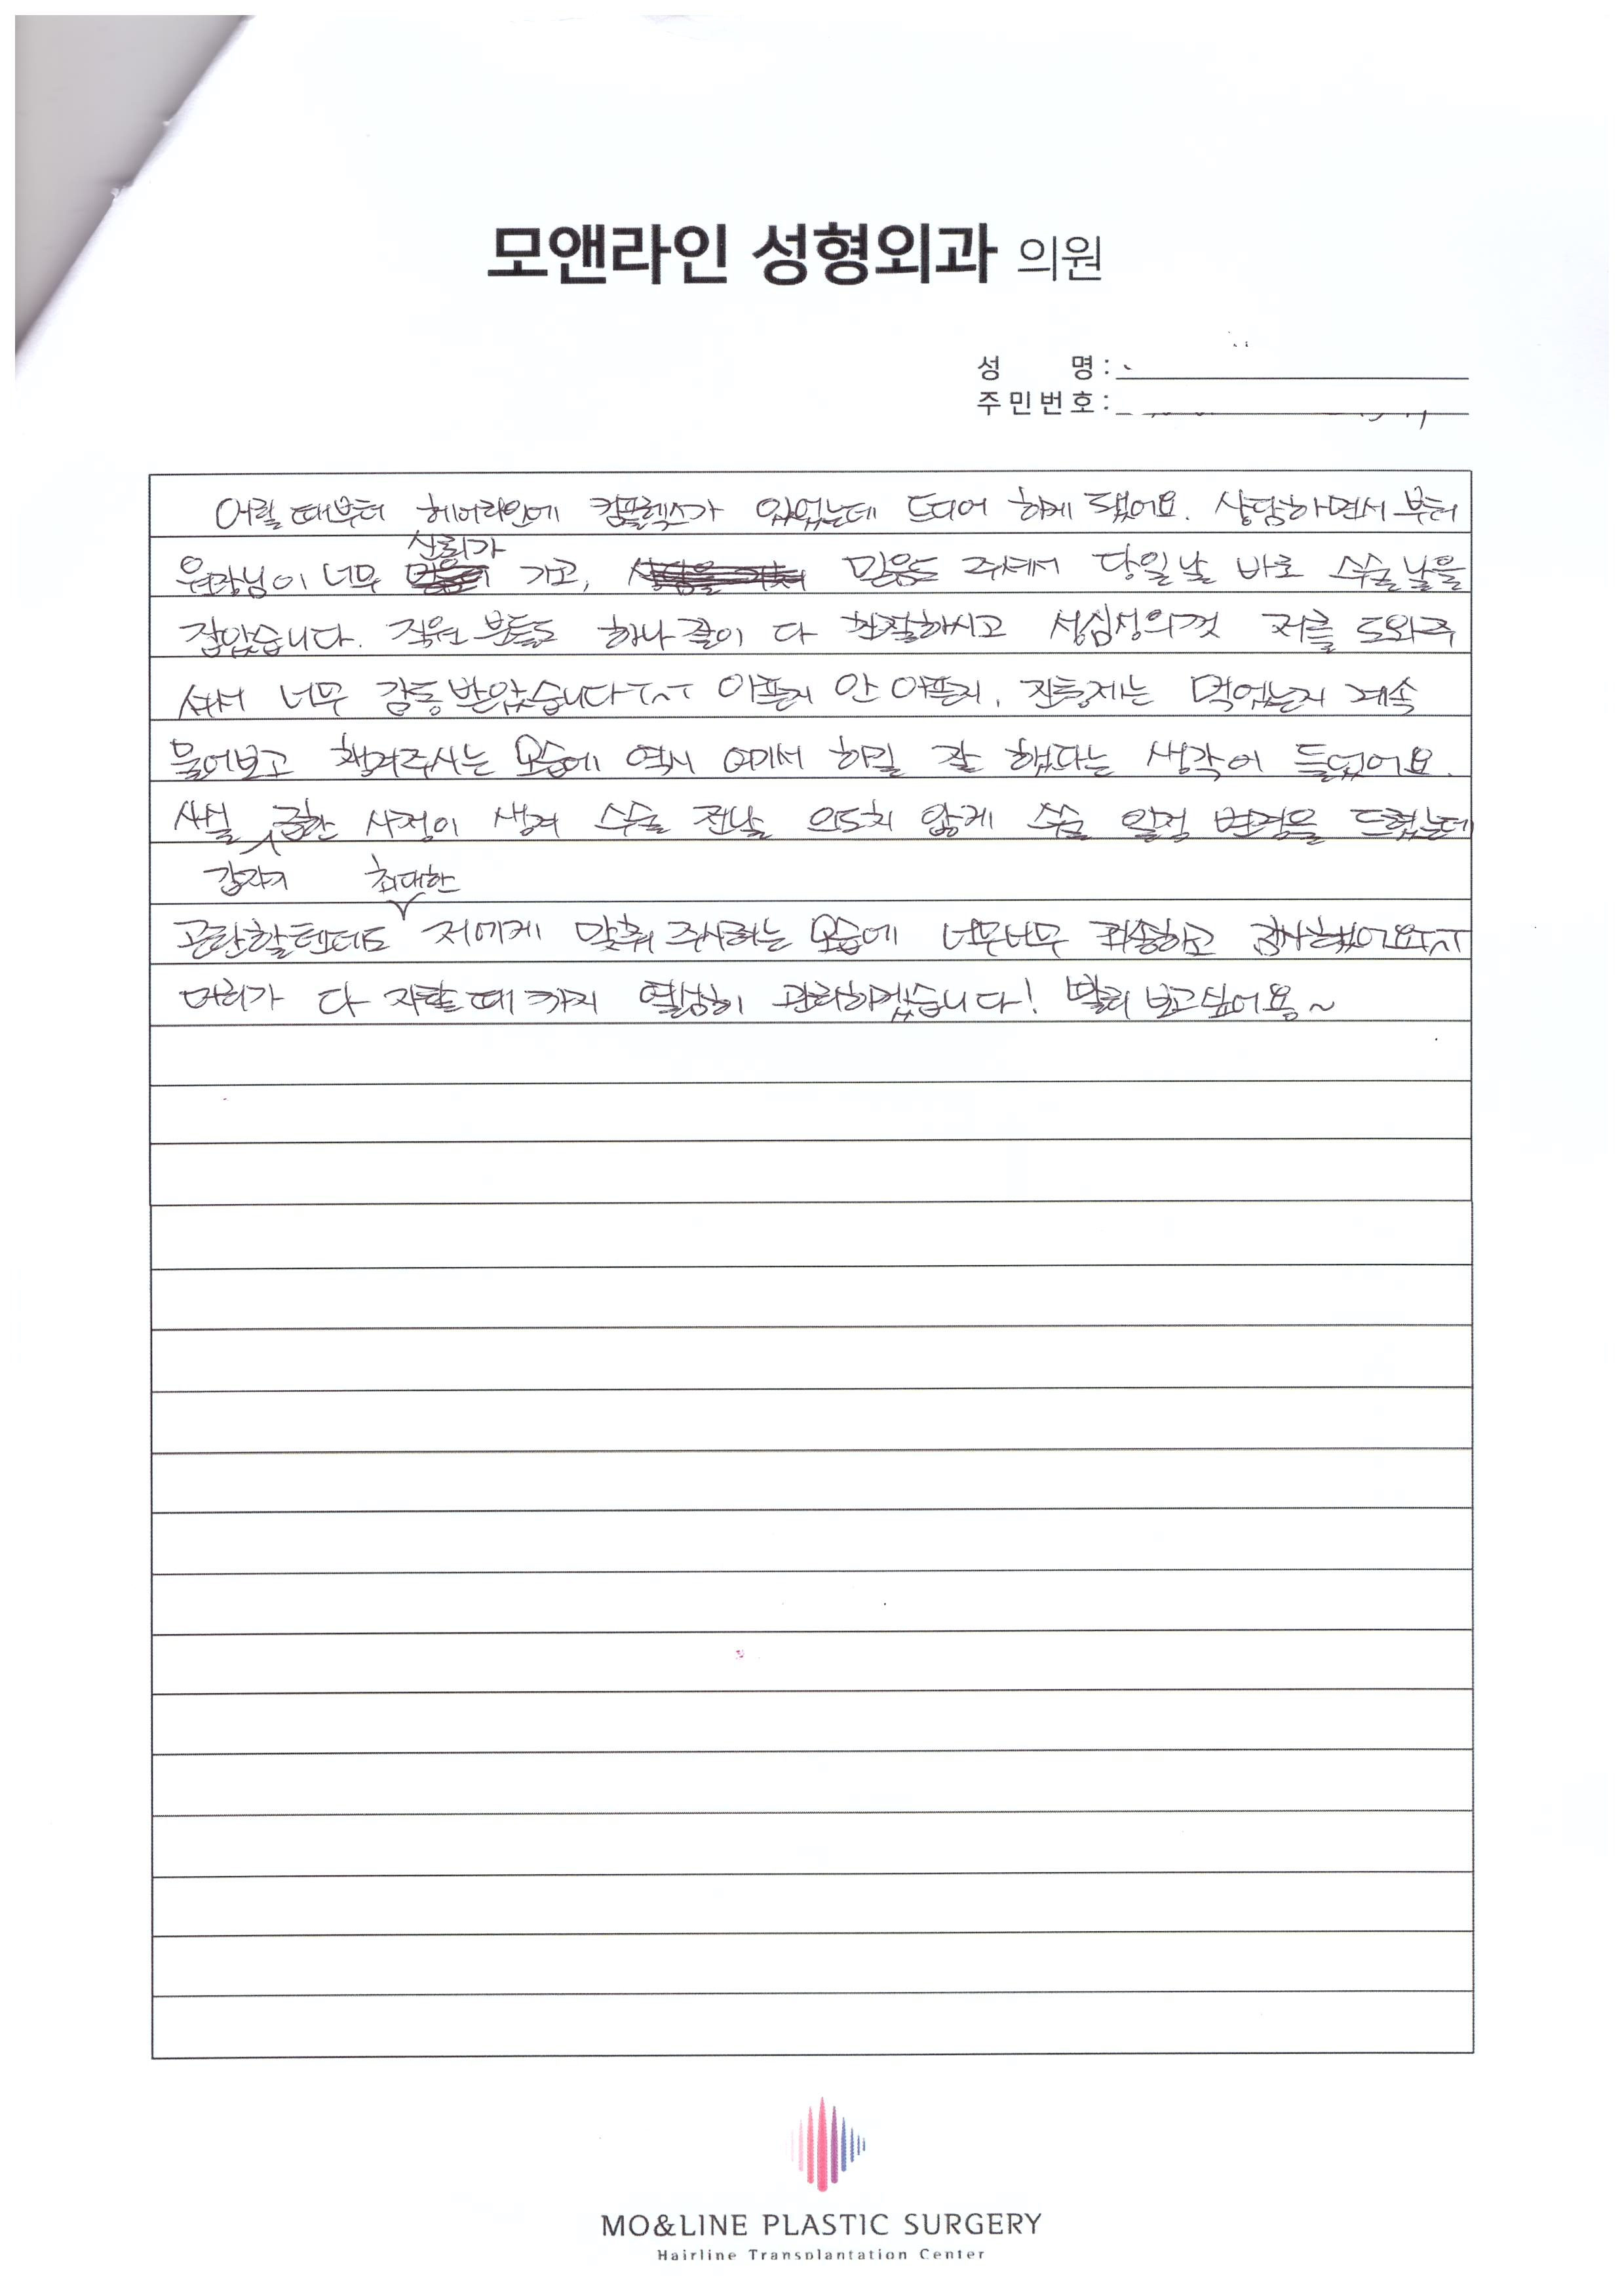 모앤라인 성형외과 의원
성 명:
주민번호:
어릴 때부터 헤어라인에 컴플렉스가 있었는데 드디어 하게 됐어요. 상담하면서 부터
신뢰가
원장님이 너무 가고, 믿음도 주셔서 당일날 바로 수술날을
잡았습니다. 직원분들도 하나같이 다 친절하시고 성심성의껏 저를 도와주
셔서 너무 감동받았습니다ㅜㅅㅜ 아픈지 안 아픈지, 진통제는 먹었는지 계속
물어보고 챙겨주시는 모습에 역시 여기서 하길 잘 했다는 생각이 들었어요.
사실 급한 사정이 생겨 수술 전날 의도치 않게 수술 일정 변경을 드렸는데
갑자기 최대한
곤란할텐데도 저에게 맞춰 주시려는 모습에 너무너무 죄송하고 감사했어요ㅜㅅㅜ
머리가 다 자랄 때 까지 열심히 관리하겠습니다! 빨리 보고싶어용~
MO&LINE PLASTIC SURGERY
Hairline Transplantation Center